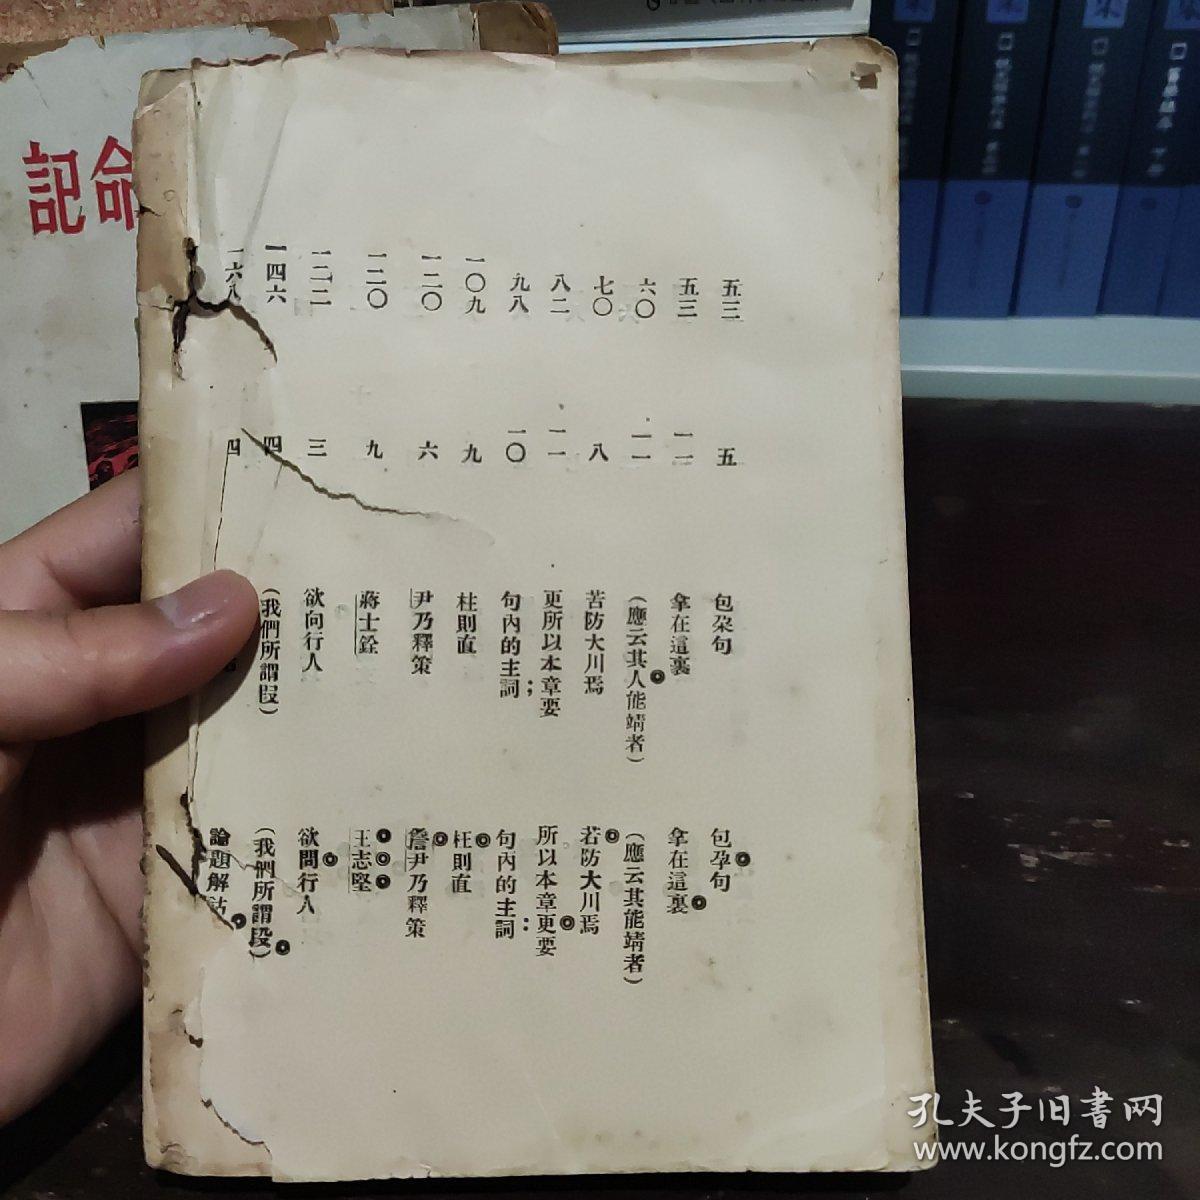 五三 五 包朶句 包孕句
五三 一一 拿在這裏 拿在這裏
六〇 一一 (應云其人能靖者) (應云其能靖者)
七〇 八 苦防大川焉 若防大川焉
八二 一一 更所以本章要 所以本章更要
九八 一〇 句內的主詞； 句內的主詞：
一〇九 九 柱則直 枉則直
一二〇 六 尹乃釋策 詹尹乃釋策
一二〇 九 蔣士銓 王志堅
一二二 三 欲向行人 欲問行人
一四六 四 (我們所謂叚) (我們所謂段)
一六八 四 論題解詁
命記
孔夫子旧書网
www.kongfz.com